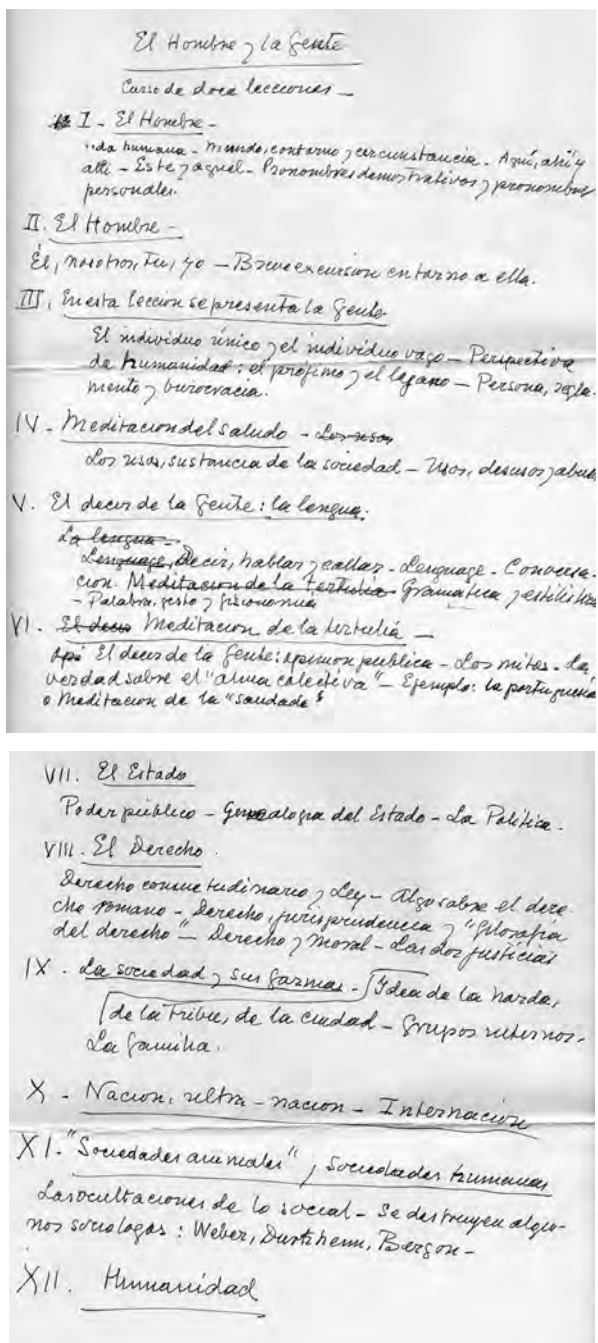 El Hombre y la Gente
Curso de doce lecciones —
I - El Hombre -
da humana - Mundo, contorno y circunstancia - Aquí, ahí y
allí - Este y aquel - Pronombres demostrativos y pronombres
personales.
II. El Hombre -
Él, nosotros, tu, yo — Breve excursion en torno a ella.
III. En esta leccion se presenta la Gente
El individuo único y el individuo vago — Perspectiva
de humanidad: el prójimo y el lejano — Persona, regla-
mento y burocracia.
IV - Meditacion del saludo - Los usos
Los usos, sustancia de la sociedad — Usos, desusos y abusos
V. El decir de la Gente: la lengua.
La lengua -
Lenguage, Decir, hablar y callar - Lenguage - Conversa-
cion. Meditacion de la tertulia Gramatica y estilistica
- Palabra, gesto y fisionomia
VI. El decir Meditacion de la tertulia —
Opi El decir de la Gente: opinion publica - Los mitos - La
verdad sobre el "alma colectiva" — Ejemplo: la portuguesa
o Meditacion de la "saudade"
VII. El Estado
Poder público - Genealogia del Estado - La Politica.
VIII. El Derecho.
Derecho consuetudinario y Ley - Algo sobre el dere-
cho romano - Derecho, jurisprudencia y "filosofia
del derecho" — Derecho y moral - Las dos justicias
IX. La sociedad y sus formas - Idea de la horda,
de la tribu, de la ciudad - Grupos internos -
La familia.
X - Nacion, ultra-nacion - Internacion
XI. "Sociedades animales" y sociedades humanas
Las ocultaciones de lo social - Se destruyen algu-
nos sociologos: Weber, Durkheim, Bergson -
XII. Humanidad